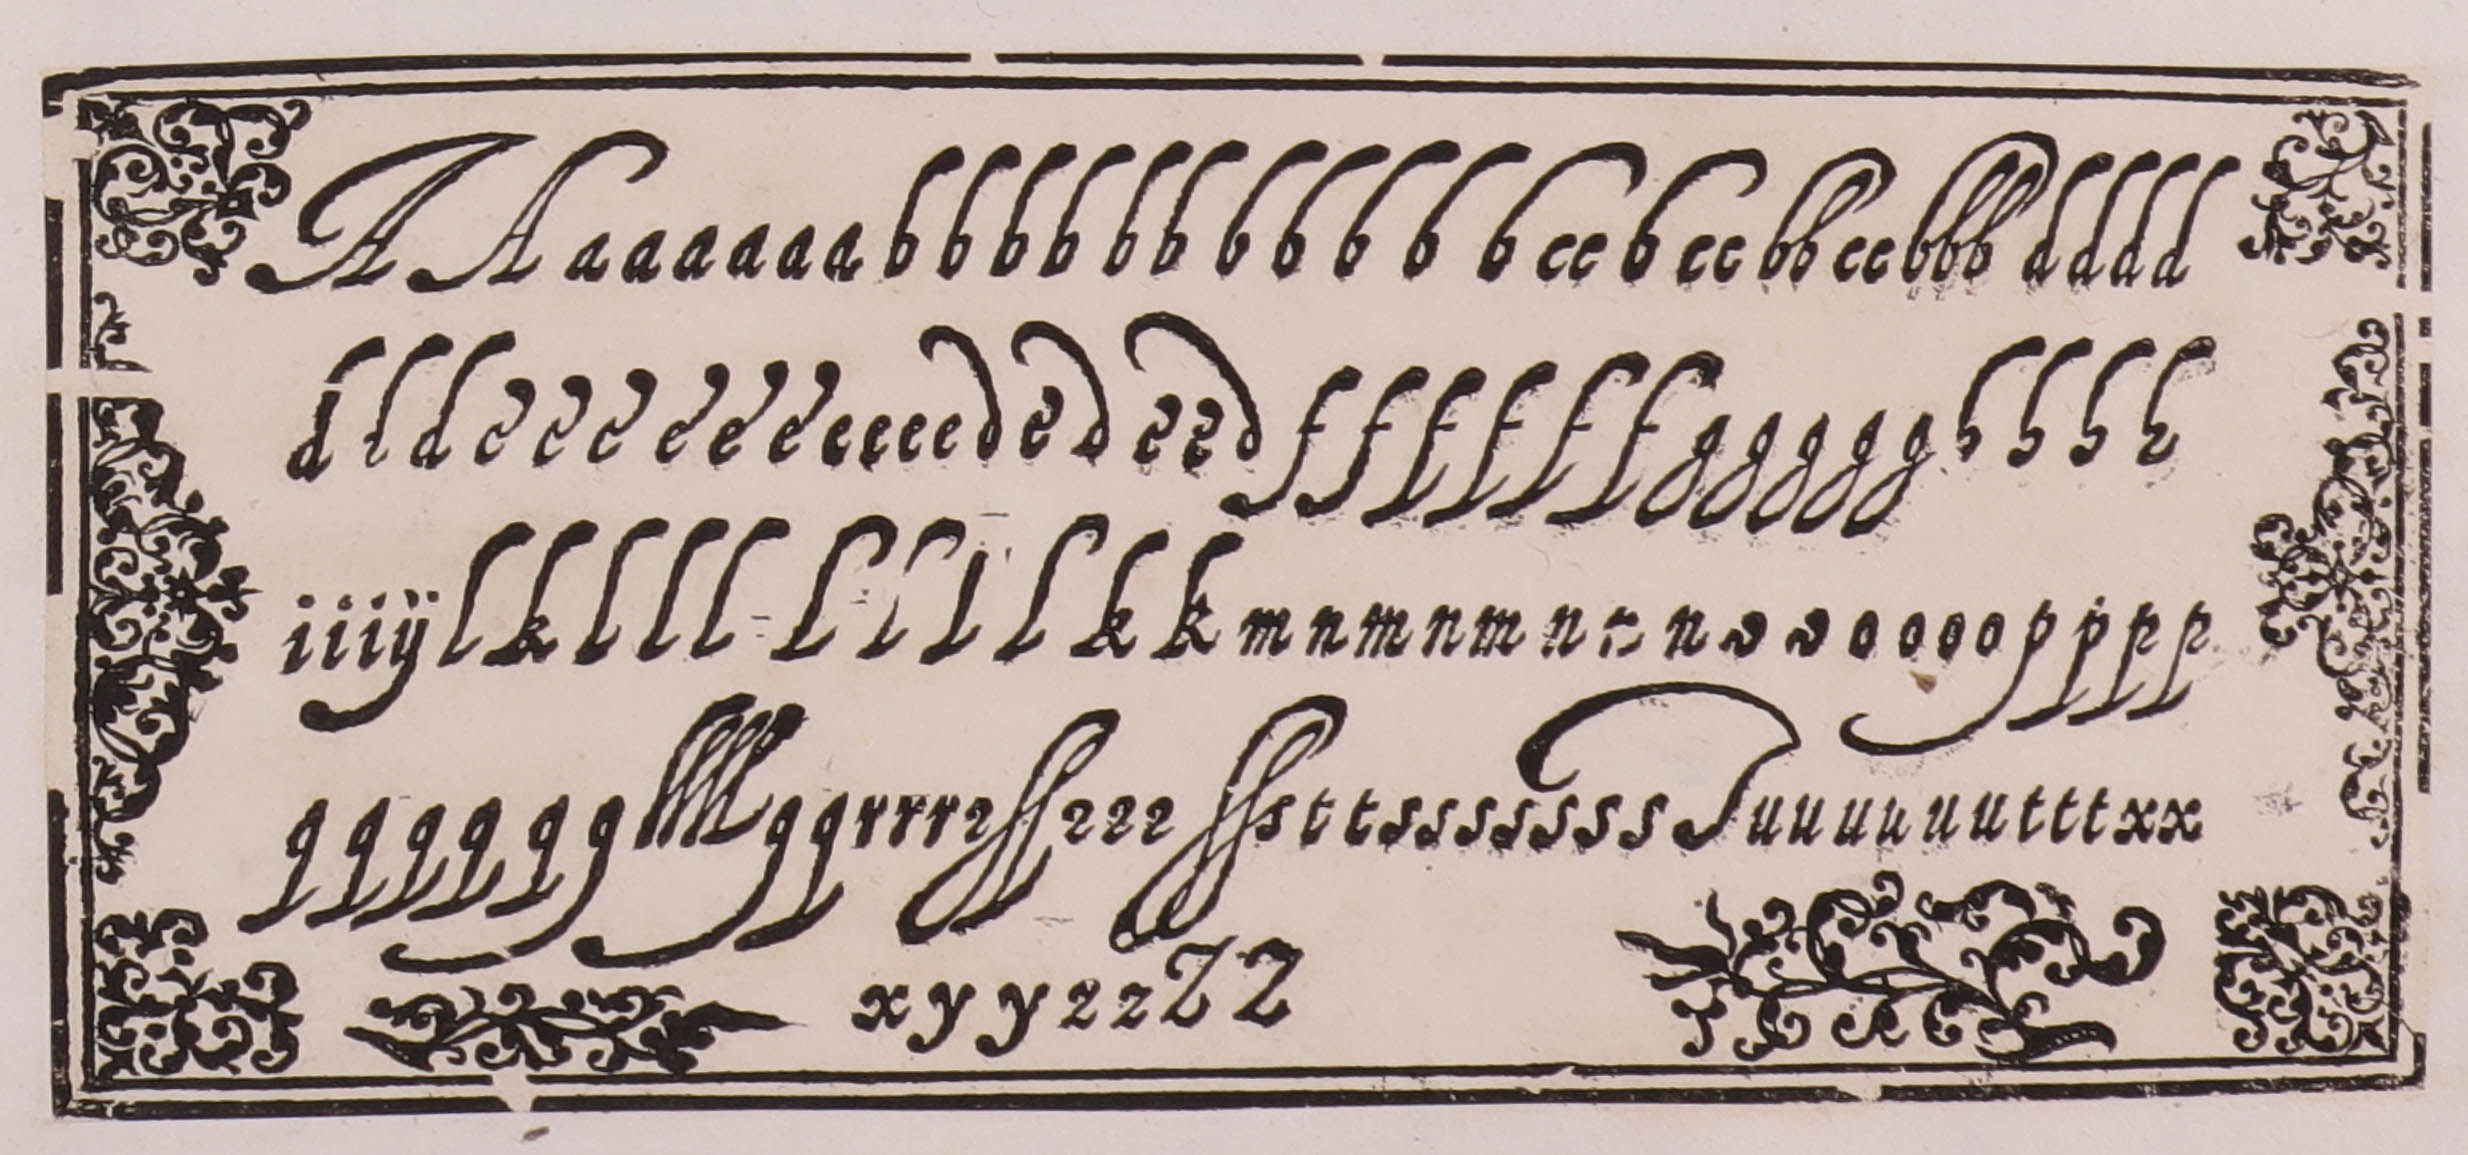 A A a a a a a a a b b b b b b b b b b b cc b cc bb cc bbb d d d d
d l d c c c e e e e e e e d e d e e d f f f f f f g g g g g h h h h
i i i ij l k l l l l l l l k k m n m n m n n v v o o o o p p p p
q q q q q q llll q q r r r r ꝛ ſſ ꝛ ꝛ ꝛ ſſ s t t s s s s s s s s T u u u u u u t t t x x
x y y z z Z Z